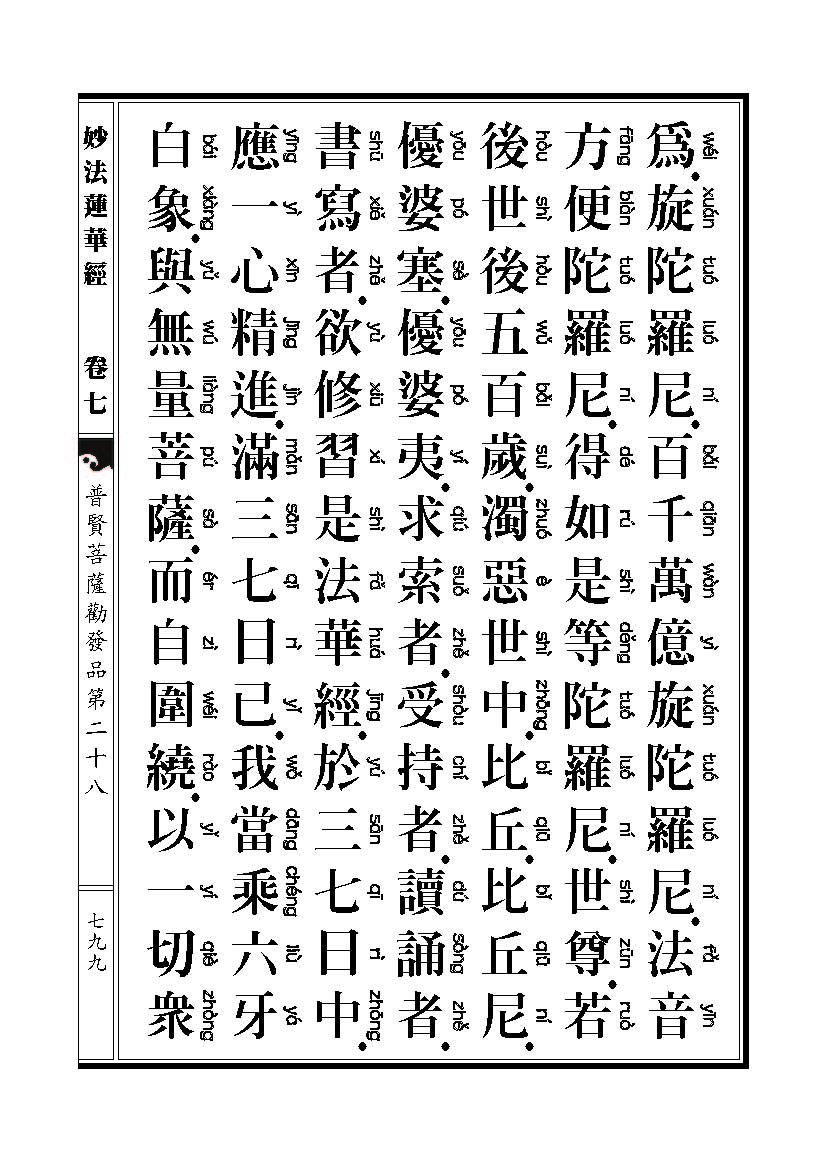 wéi xuán tuó luó ní bǎi qiān wàn yì xuán tuó luó ní fǎ yīn
爲．旋陀羅尼．百千萬億旋陀羅尼．法音
fāng biàn tuó luó ní dé rú shì děng tuó luó ní shì zūn ruò
方便陀羅尼．得如是等陀羅尼．世尊．若
hòu shì hòu wǔ bǎi suì zhuó è shì zhōng bǐ qiū bǐ qiū ní
後世後五百歲．濁惡世中．比丘．比丘尼．
yōu pó sè yōu pó yí qiú suǒ zhě shòu chí zhě dú sòng zhě
優婆塞．優婆夷．求索者．受持者．讀誦者．
shū xiě zhě yù xiū xí shì fǎ huá jīng yú sān qī rì zhōng
書寫者．欲修習是法華經．於三七日中．
yīng yì xīn jīng jìn mǎn sān qī rì yǐ wǒ dāng chéng liù yá
應一心精進．滿三七日已．我當乘六牙
bái xiàng yǔ wú liàng pú sà ér zì wéi rào yǐ yí qiè zhòng
白象．與無量菩薩．而自圍繞．以一切衆
妙法蓮華經 卷七
普賢菩薩勸發品第二十八
七九九